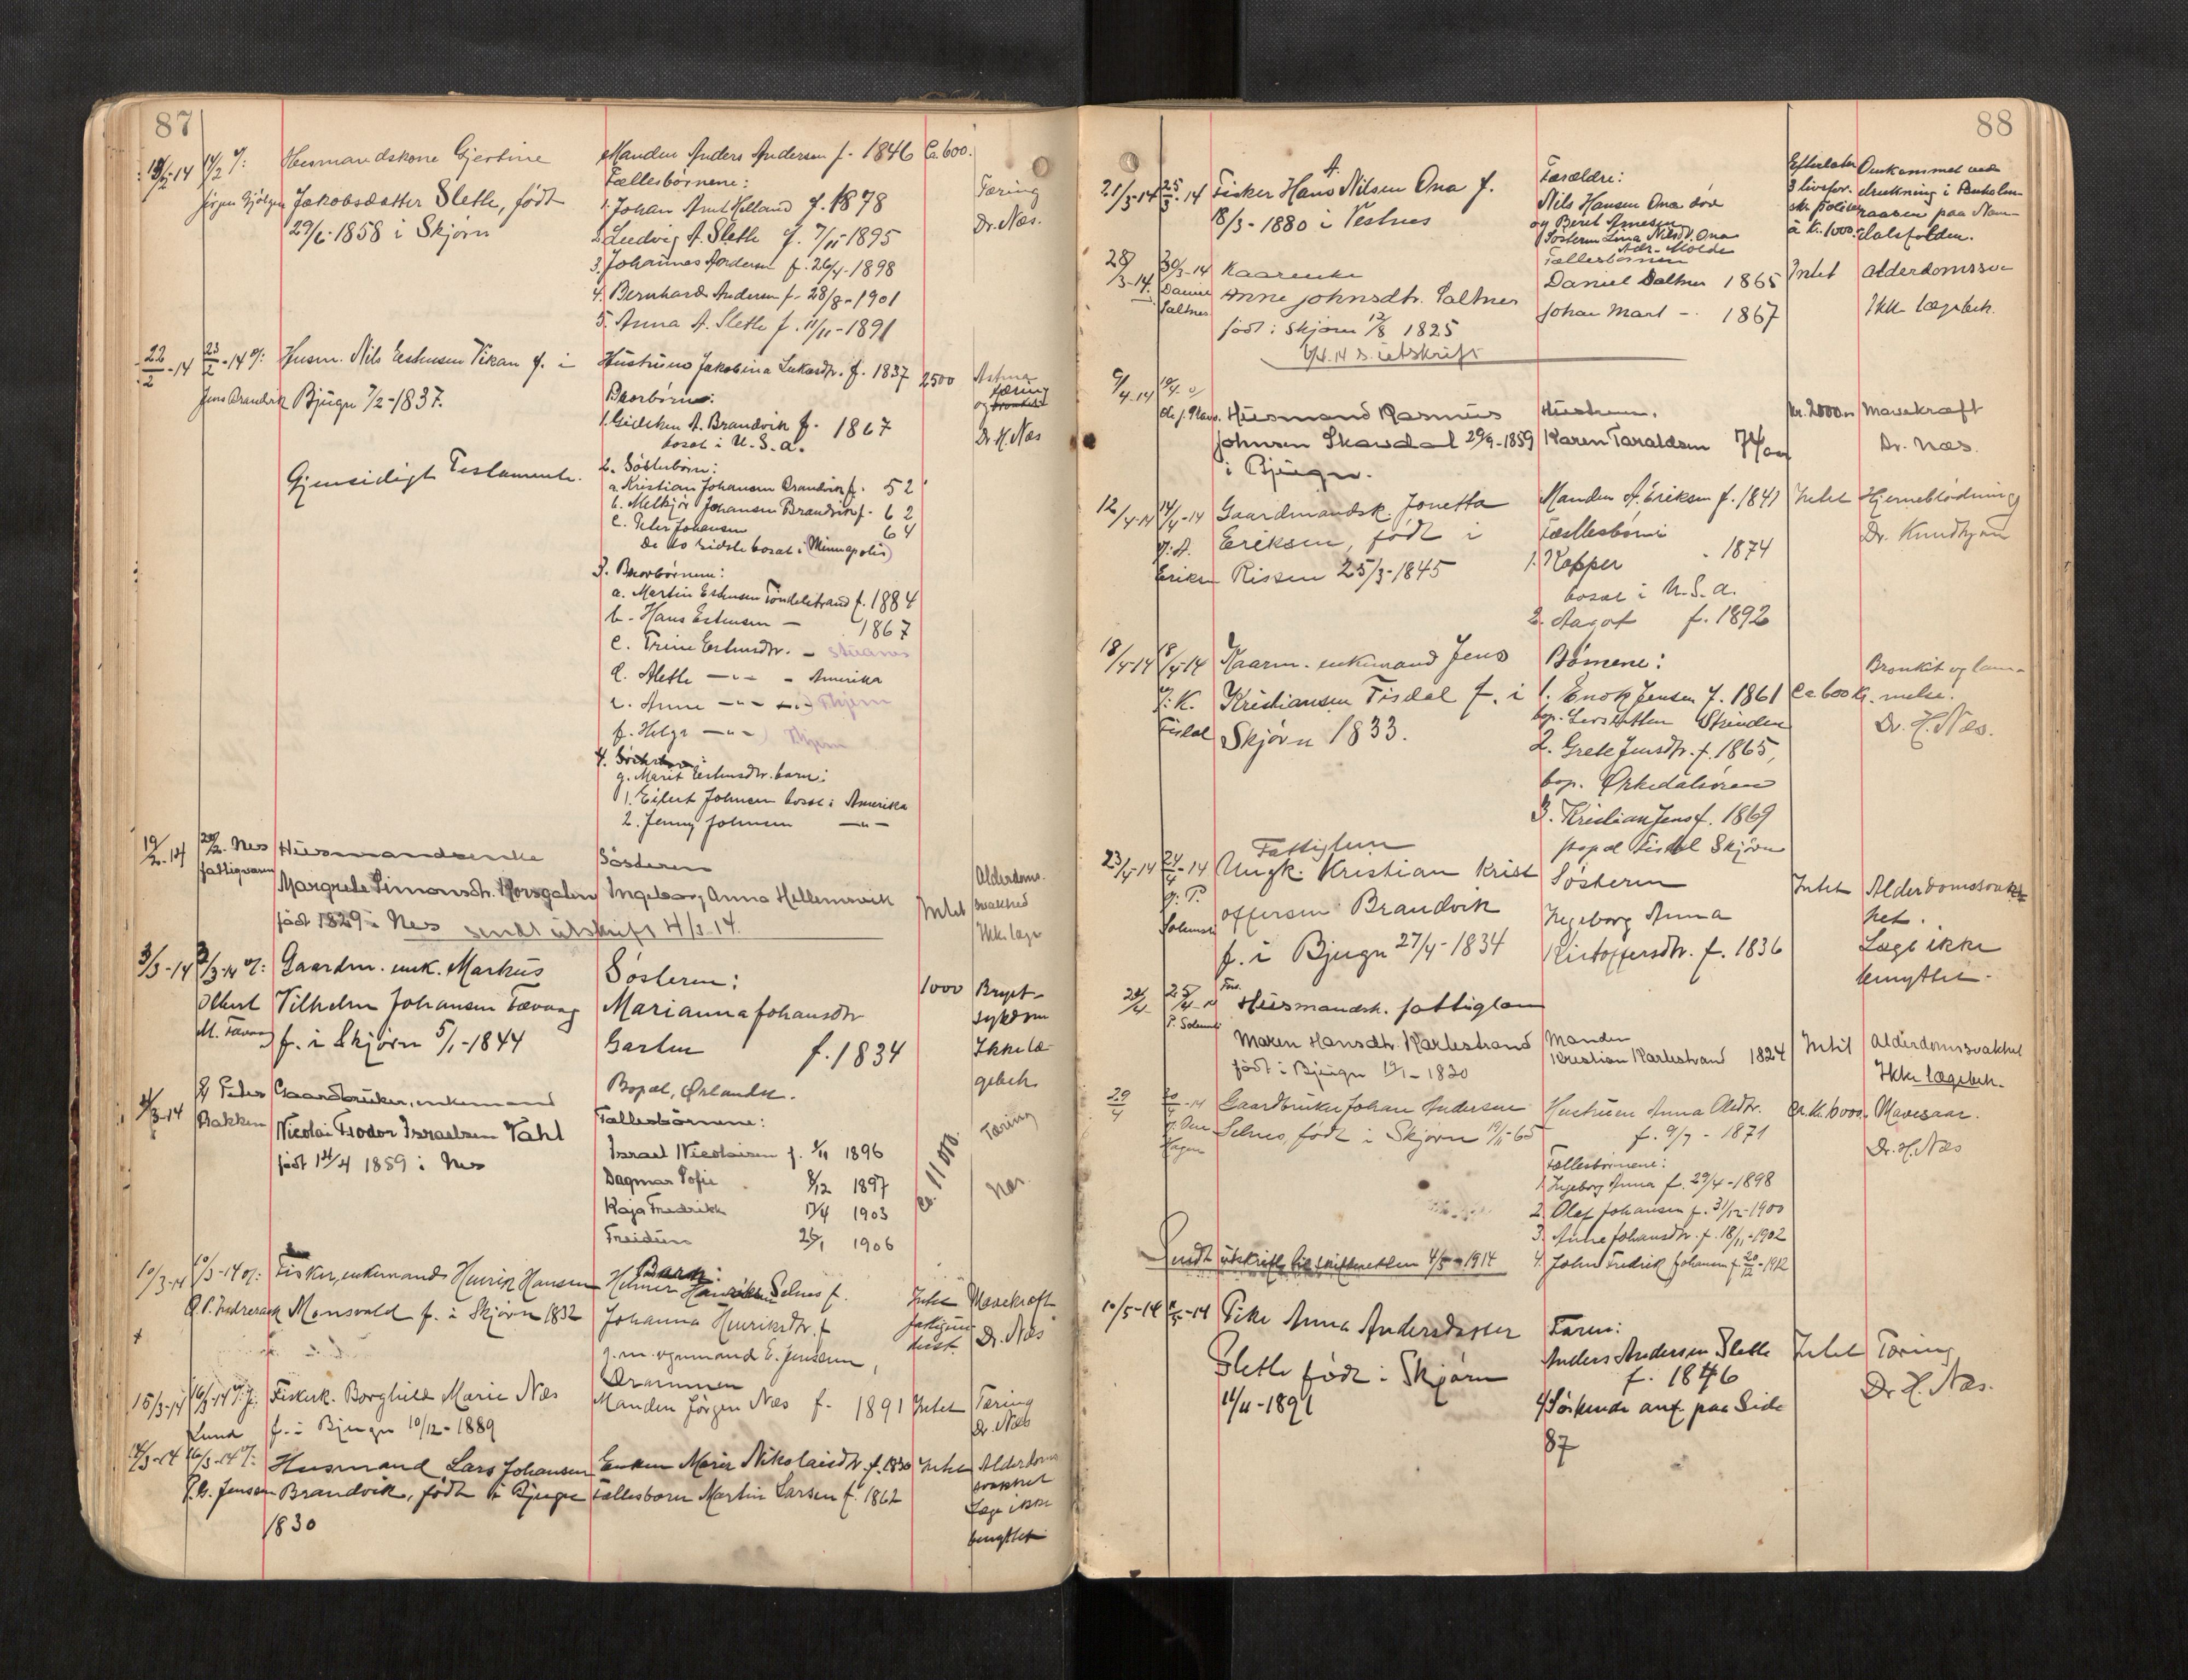 87
14/2 %:
Husmandskone Gjertine
Jakobsdatter Slette, født
29/6-1858 i Skjørn
Manden Anders Andersen f. 1846
Fællesbørnene:
1. Johan Arnt Helland f. 1878
2. Ludvig A. Slette f. 7/11-1895
3. Johannes Andersen f. 26/4-1898
4. Bernhard Andersen f. 28/8-1901
5. Anna A. Slette f. 11/11-1891
Ca. 600.
Tæring
Dr. Næs.
22/2-14
23/2-14 %:
Jens Brandvik
Husm. Nils Estensen Vikan f. i
Bjugn 7/2-1837.
Gjensidigt Testamente.
Hustruns Jakobina Lukasdtr. f. 1837
Brorbørn:
1. A. Brandvik f. 1867
bosat i U.S.a.
2. Søsterbørn:
a. Kristian Johansen Brandvik f. 52
b. Melkjør Johansen Brandvik f. 62
c. Peter Johansen 64
De to sidste bosat i Minneapolis
3. Brorbørnene:
a. Martin Estensen Tøndelstrand f. 1884
b. Hans Estensen — 1867
c. Trine Estensdtr. —
d. Alette — " — - Amerika
e. Anne — " —
f. Helge — " —
g. Marit Estensdtr. barn:
1. Eilert Johnsen bosat i Amerika
2. Jenny Johnsen — " —
2500
Astma
og tæring
Dr. H. Næs
19/2-14
Nes
fattigvæsen
Husmandsenke
Margrete Simonsdtr. Horsgalen
født 1829 i Nes
sendt utskrift 4/3 14.
Søsteren
Ingeborg Anna Hellemsvik
Intet
Alderdoms-
svakhed
Ikke læge
3/3-14
3/3-14 %:
Olkert
M. Tævang
Gaardm. enk. Markus
Vilhelm Johansen Tævang
f. i Skjørn 5/1-1844
Søsteren:
Marianna Johansdtr
Garten f. 1834
Bopæl, Ørlandet.
1000
Bryst-
sykdom
Ikke læ-
gebeh.
4/3-14
Peder
Bakken
Gaardbruker, enkemand
Nicolai Frodor Israelsen Vahl
født 14/4 1859 i Nes
Fællesbørnene:
Israel Nicolaisen f. 1/11 1896
Dagmar Sofie 8/12 1897
Kaja Fredrikk 17/4 1903
Freidun 26/1 1906
Ca. 11 000
Tæring
Næs.
10/3-14
10/3-14 %:
Fisker, enkemand Henrik Hansen
Monsvald f. i Skjørn 1832
Barn:
Helmer Henriksen Selnes f.
Johanna Henriksdtr. f
g. m. vognmand E. Jensen,
Drammen
Intet
fattigun-
derst.
Mavekræft
Dr. Næs
15/3-14
16/3-14 %: J.
Lund
Fiskerk. Borghild Marie Næs
f. i Bjugn 10/12-1889
Manden Jørgen Næs f. 1891
Intet
Tæring
Dr. Næs
14/3-14
16/3-14 %:
P. B. Jensen
Husmand Lars Johansen
Brandvik, født i Bjugn
1830
Enken Marie Nikolaisdtr. f. 1830
Fællesbarn Martin Larsen f. 1862
Intet
Alderdoms
svakhet
Læge ikke
benyttet
88
21/3-14
25/3-14
Fisker Hans A. Nilsen Ona f.
18/3-1880 i Vestnes
Forældre:
Nils Hansen Ona død
og Berit Arnesen
Søsteren Lina Nilsd. Ona
Adr. Molde
Efterlater
3 livsfor-
sk. policer
à kr. 1000.
Omkommet ved
drukning i
paa Nam-
dalsfolden.
28/3-14.
30/3-14
Daniel
Saltnes
Kaarenke
Anne Johnsdtr. Saltnes
født i Skjørn 12/8 1825
1/4.14 s. utskrift
Fællesbørnene
Daniel Saltnes 1865
Johan Mart — 1867
Intet
Alderdomssv.
Ikke lægebeh.
9/4-14
Husmand Rasmus
Johnsen Skavdal 29/9-1859
i Bjugn.
Hustruen,
Karen Taraldsen
kr. 2000.
Mavekræft
Dr. Næs.
12/4-14
14/4-14
v. A.
Eriksen
Gaardmandsk. Jonetta
Eriksen, født i
Rissen 25/3-1845
Manden A. Eriksen f. 1841
Fællesbørn
1. Kasper 1874
bosat i U.S.a.
2. Aagot f. 1892
Intet
Hjerneblødning
Dr. Knudtzon
18/4-14
18/4-14
v. K.
Fisdal
Kaarm. enkemand Jens
Kristiansen Fisdal f. i
Skjørn 1833.
Børnene:
1. Enok Jensen f. 1861
bop. Strinden
2. Grete Jensdtr. f. 1865,
bop. Ørkedalsøren
3. Kristian Jens f. 1869
bopæl Fisdal Skjørn
Ca. 600 kr.
Bronkit og lam-
melse.
Dr. H. Næs.
23/4-14
24/4-14
v. P.
Solemsli
Fattiglem
Ungk. Kristian Krist
offersen Brandvik
f. i Bjugn 27/4-1834
Søsteren
Ingeborg Anna
Kristoffersdtr. f. 1836
Intet
Alderdomssvak-
het.
Læge ikke
benyttet.
24/4
25/4-14
P. Solemsli
Husmandsk. fattiglem
Maren Hansdtr. Karlestrand
født i Bjugn 12/1-1830
Manden
Kristian Karlestrand 1824
Intet
Alderdomssvakhet
Ikke lægebeh.
29/4
30/4-14
Hagen
Gaardbruker Johan Andersen
Selnes, født i Skjørn 19/11-65
Sendt utskrift til skifteretten 4/5-1914
Hustruen Anna Olsdtr.
f. 9/7-1871
Fællesbørnene:
1. Ingeborg Anna f. 29/4-1898
2. Olaf Johansen f. 31/12-1900
3. Anne Johansdtr. f. 18/11-1902
4. John Fredrik Johansen f. 20/12-1912
Ca. kr. 6000.
Mavesaar.
Dr. H. Næs
10/5-14
Pike Anna Andersdatter
Slette født i Skjørn
11/11-1891
Faren:
Anders Andersen Slette
f. 1846
4 Søskende anf. paa Side
87
Intet
Tæring
Dr. H. Næs.